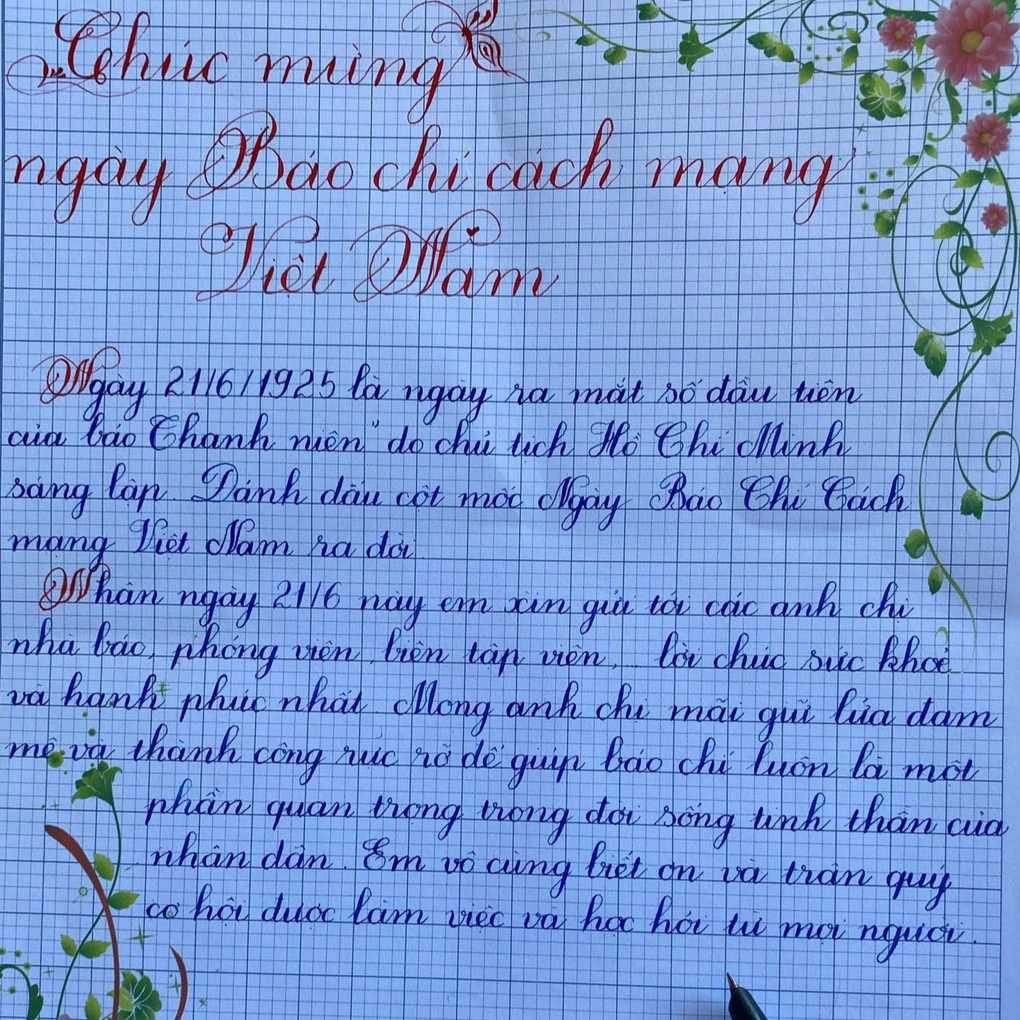 Chúc mừng
ngày Báo chí cách mạng
Việt Nam
Ngày 21/6/1925 là ngày ra mắt số đầu tiên
của báo Thanh niên" do chủ tịch Hồ Chí Minh
sáng lập. Đánh dấu cột mốc Ngày Báo Chí Cách
mạng Việt Nam ra đời.
Nhân ngày 21/6 này em xin gửi tới các anh chị
nhà báo, phóng viên, biên tập viên,... lời chúc sức khoẻ
và hạnh phúc nhất. Mong anh chị mãi giữ lửa đam
mê và thành công rực rỡ để giúp báo chí luôn là một
phần quan trọng trong đời sống tinh thần của
nhân dân. Em vô cùng biết ơn và trân quý
cơ hội được làm việc và học hỏi từ mọi người.